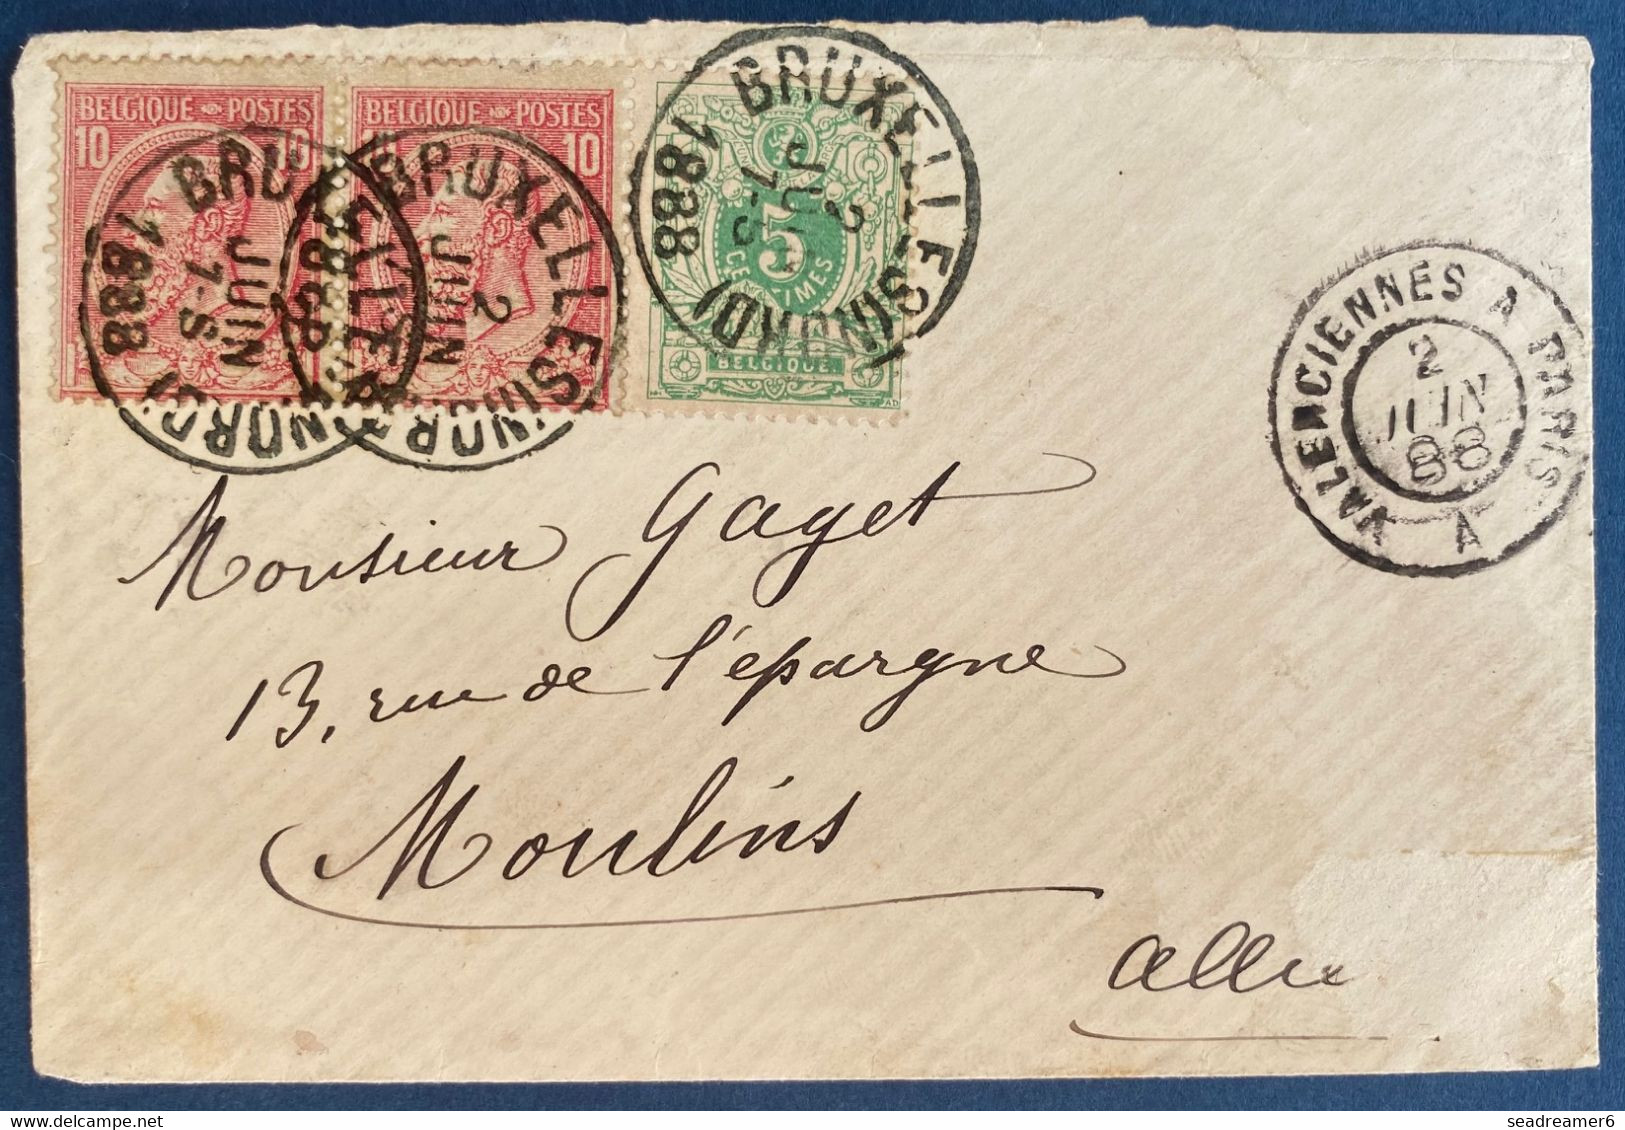 BELGIQUE POSTES
10 10
BELGIQUE POSTES
10 10
5
CENTIMES
BELGIQUE
BRUXELLES (NORD)
2
JUIN
7-S
1888
BRUXELLES (NORD)
2
JUIN
1888
BRUXELLES (NORD)
2
JUIN
7-S
1888
VALENCIENNES A PARIS
2
JUIN
88
A
Monsieur Gaget
13, rue de l'épargne
Moulins
allie
© delcampe.net
seadreamer6